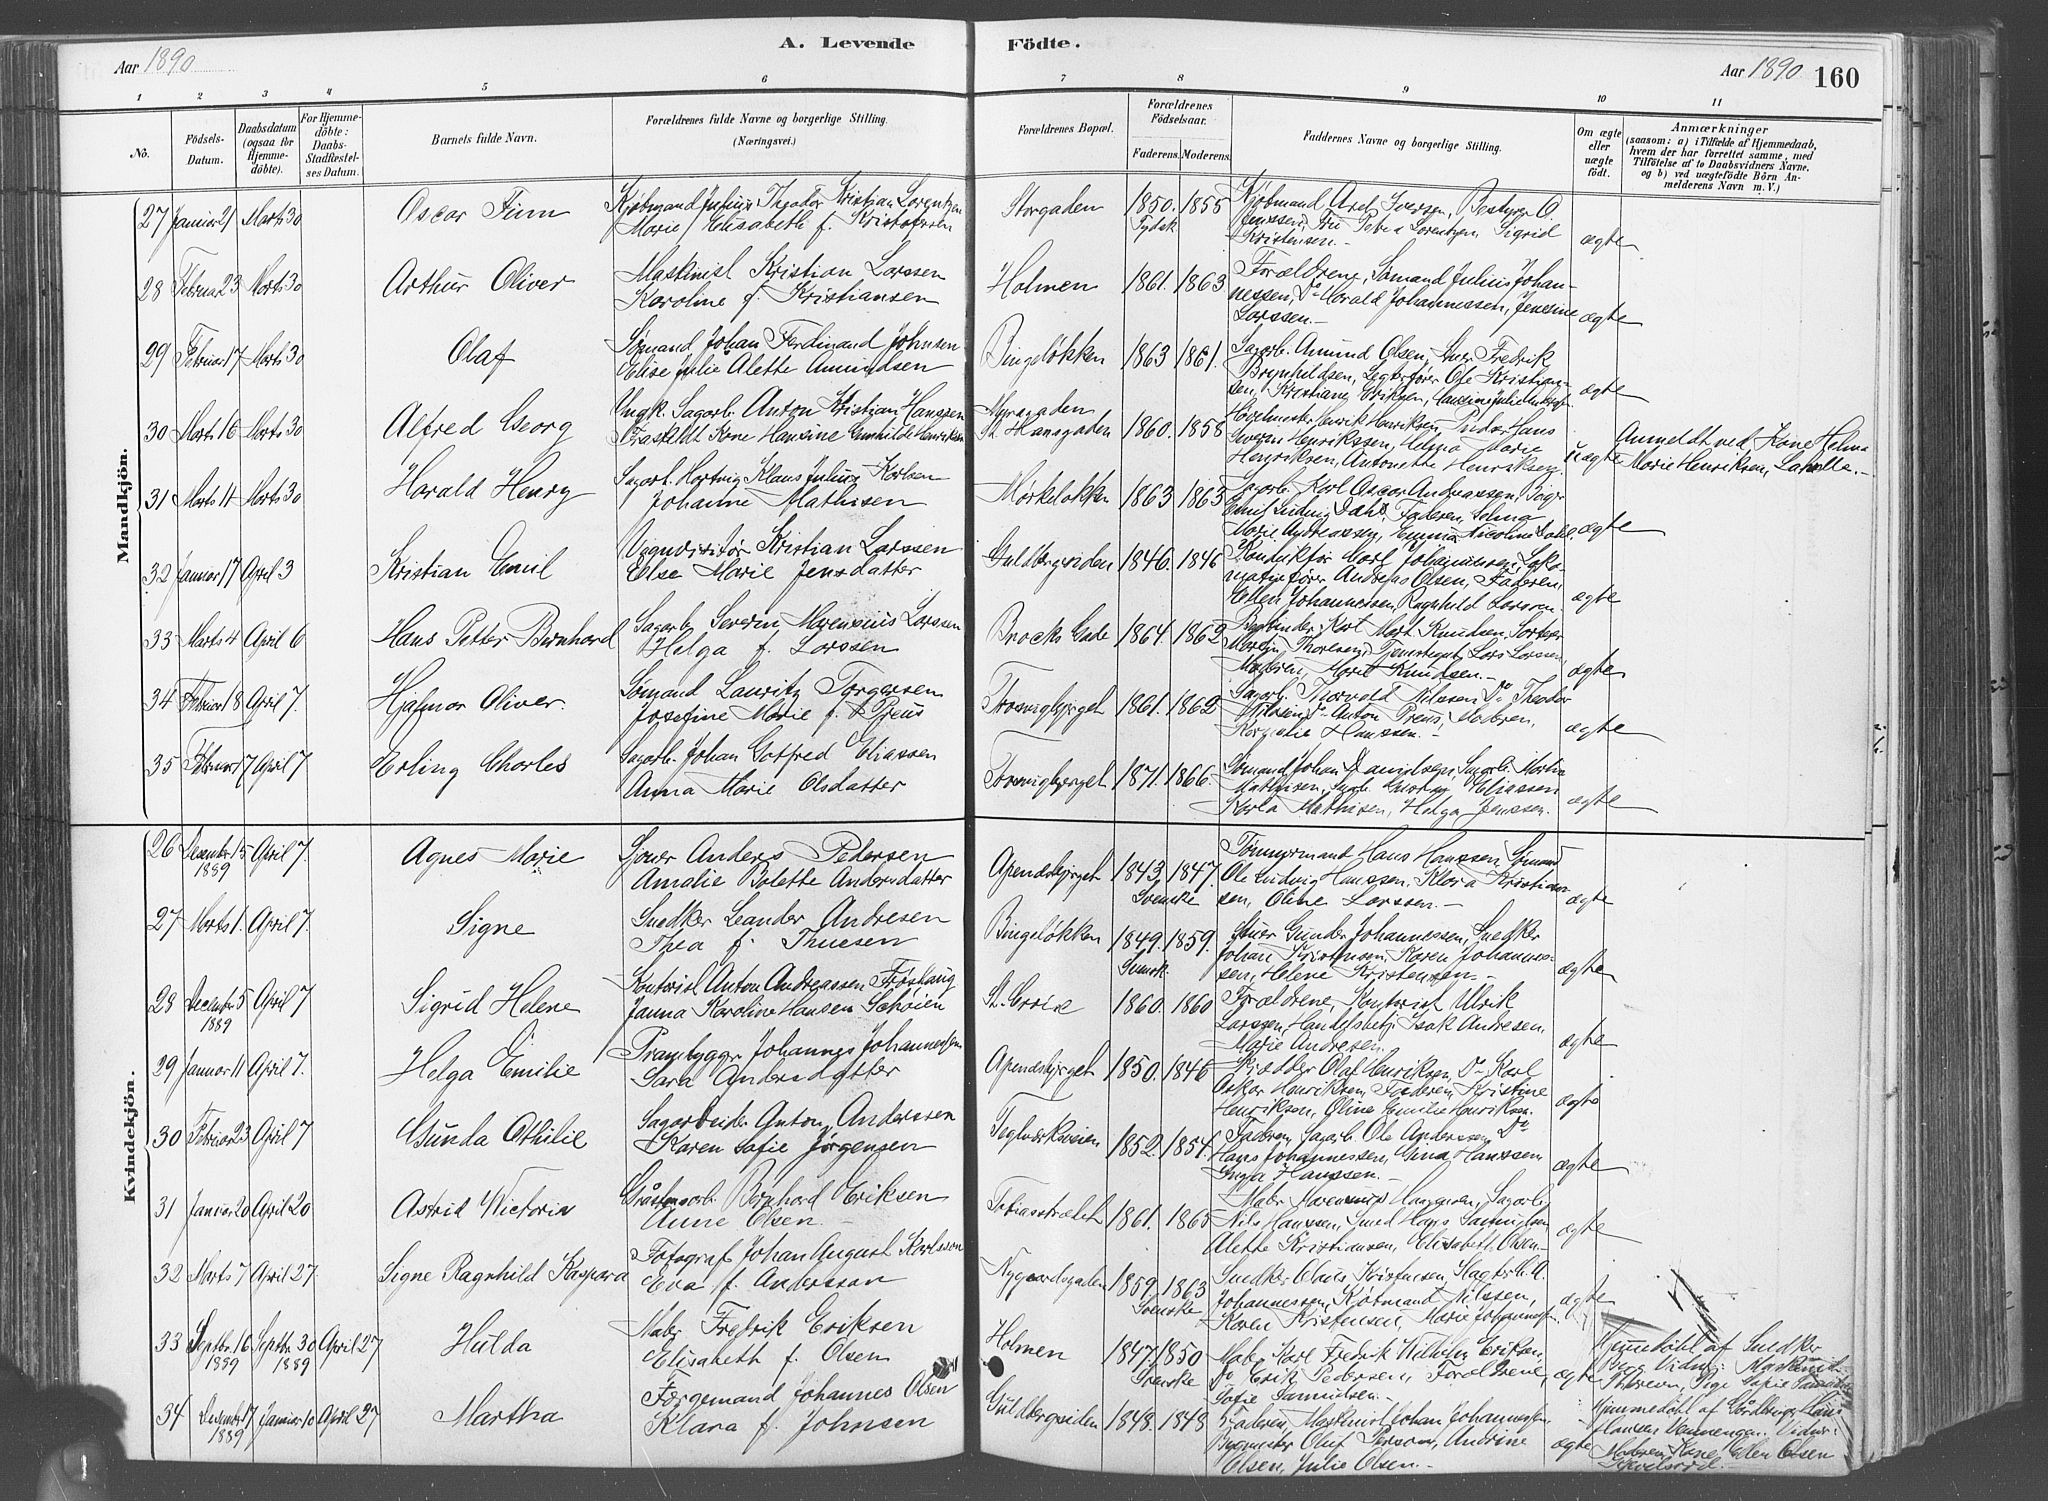 Aar 1890
A. Levende Födte.
Aar 1890 160
1 2 3 4 5 6 7 8 9 10 11
No.
Födsels-Datum.
Daabsdatum (ogsaa for Hjemmedöbte).
For Hjemmedöbte: Daabs-Stadfæstelses Datum.
Barnets fulde Navn.
Forældrenes fulde Navne og borgerlige Stilling. (Næringsvei.)
Forældrenes Bopæl.
Forældrenes Födselsaar.
Faderens. Moderens.
Faddernes Navne og borgerlige Stilling.
Om ægte eller uægte födt.
Anmærkninger
(saasom: a) i Tilfælde af Hjemmedaab, hvem der har forrettet samme, med Tilföielse af to Daabsvidners Navne, og b) ved uægtefödte Börn Anmelderens Navn m. V.)
Mandkjön.
27 Januar 21 Marts 30 Oscar Finn
Kjøbmand Julius Theodor Kristian Lorentzen
Marie Elisabeth f. Kristofersen
Storgaden 1850. 1855
Tydsk
Kjøbmand Axel Iversen, Bestyrer O.
Jenssen, Fru Petra Lorentzen, Sigrid
Kristensen.-
ægte
28 Februar 23 Marts 30 Arthur Oliver
Maskinist Kristian Larssen
Karoline f. Kristiansen
Holmen 1861. 1863
Forældrene, Sømand Julius Johan-
nessen, Do Harald Johannessen, Jensine
Larssen.-
ægte
29 Februar 17 Marts 30 Olaf
Sømand Johan Ferdinand Johnsen
Elise Julie Alette Amundsen
Bingeløkken 1863 1861.
Sagarb. Amund Olsen, Stuer Fredrik
Brynhildsen, Ole Kristian-
sen, Kristiane Eriksen,
ægte
30 Marts 16 Marts 30 Alfred Georg
Ungk. Sagarb. Anton Kristian Hanssen
Fraskildt Kone Hansine Gunhilde Henriksen
Myragaden
St. Hansgaden 1860. 1858
Henrik Henriksen, Hans
Henrikssen, Helma Marie
Henriksen, Antonette Henriksen
uægte
Anmeldt ved Kone Helma
Marie Henriksen, Lahelle.-
31 Marts 11 Marts 30 Harald Henry
Sagarb. Hartvig Klaus Julius Karlsen
Johanne Mathisen
Mørkeløkken 1863 1863
Sagarb. Karl Oscar Andreassen,
Emil Ludvig Dahl, Faderen, Selma
Marie Andreassen, Emma Nicoline Dahl.
ægte
32 Januar 17 April 3 Kristian Emil
Vognvisitør Kristian Larssen
Else Marie Jensdatter
Guldbergsiden 1846. 1846
Konduktør Carl Johannessen, Loko-
motivfører Andreas Olsen, Faderen,
Ellen Johannessen, Ragnhild Larssen
ægte
33 Marts 4 April 6 Hans Petter Bernhard
Sagarb. Severin Marensius Larssen
Helga f. Larssen
Brochs Gade 1864. 1862
Mart. Knudsen,
Lars Larssen,
Moderen, Marie Knudsen.-
ægte
34 Februar 18 April 7. Hjalmar Oliver.
Sømand Lauritz Torgersen
Josefine Marie f. Preus
Trosvigbjerget 1861. 1862
Sagarb. Thorvald Nilssen, Do Theodor
Nilssen, Do Anton Preus, Moderen,
Hanssen.-
ægte
35 Februar 7 April 7 Erling Charles
Sagarb. Johan Gotfred Eliassen
Anna Marie Olsdatter
Trosvigbjerget 1871. 1866.
Sømand Johan Davidsen, Sagarb. Martin
Mathisen, Gustav Eliassen
Karla Mathisen, Helga Jenssen.
ægte
Kvindekjön.
26 December 15 1889 April 7. Agnes Marie
Sjouer Anders Pedersen
Amalie Bolette Andersdatter
Apenesbjerget 1843. 1847.
Svenske
Tømmermand Hans Hanssen, Sømand
Ole Ludvig Hanssen, Klara Kristian-
sen, Oline Larssen.-
ægte
27 Marts 1. April 7. Signe
Snedker Leander Andresen
Thea f. Thuesen
Bingeløkken 1849. 1859.
Svensk.
Stuer Gunder Johannessen, Snedker
Johan Kristensen, Karen Johannes-
sen, Helene Kristensen.-
ægte
28 December 5 1889 April 7 Sigrid Helene
Kontorist Anton Andreassen Frøshaug
Janna Karoline Hansen Schøien
St. Croix 1860. 1860
Forældrene, Kontorist Ulrik
Larssen, Handelsbetj. Isak Andresen,
Marie Andresen.
ægte
29 Januar 11 April 7. Helga Emilie
Prambygger Johannes Johannessen
Sara Andersdatter
Apenesbjerget 1850. 1846
Skrædder Olaf Henriksen, Do Karl
Oskar Henriksen, Faderen, Kristine
Henriksen, Oline Emilie Henriksen.
ægte
30 Februar 23 April 7 Gunda Othilie
Sagarbeider Anton Anderssen
Karen Sofie Jørgensen
Teglværksveien 1852. 1854.
Faderen, Sagarb. Ole Anderssen, Do
Hans Johannessen, Gina Hanssen
Inga Hanssen.-
ægte
31 Januar 20 April 20 Astrid Victoria
Gråstensarb. Bernhard Eriksen
Anne Olsen.-
Tobiasstrædet 1861. 1865
Sagarb.
Nils Hanssen, Smed Hans Samuelsen,
Alette Kristiansen, Elisabeth Olsen.-
ægte
32 Marts 7 April 27 Signe Ragnhild Kaspara
Fotograf Johan August Karlsson
Eva f. Andersson
Nygaardsgaden 1859. 1863
Svenske
Snedker Claus Kristensen, Slagter C. A.
Johannessen, Kjøbmand Nilssen,
Karen Kristensen, Marie Johannessen.
ægte
33 Septbr. 16 1889 Septbr. 30 1889 April 27 Hulda
Mabr. Fredrik Eriksen
Elisabeth f. Olsen
Holmen 1847. 1850
Svenske
Mabr. Karl Fredrik Wilhelm Eriksen,
Do Erik Pedersen, Forældrene,
Sofie Samuelsen.-
ægte
Hjemmedøbt af Snedker
Berg. Vidner: Maskinist
Pige Sofie
34 December 7 1889 Januar 10 April 27 Martha
Formand Johannes Olsen
Klara f. Johnsen
Guldbergsiden 1848. 1848
Faderen, Maskinist Johan Johannessen,
Bygmester Oluf Persson, Andrine
Olsen, Julie Olsen.-
ægte
Hjemmedøbt af
Hansen Vidner:
Moderen, Kone Ellen Olsen